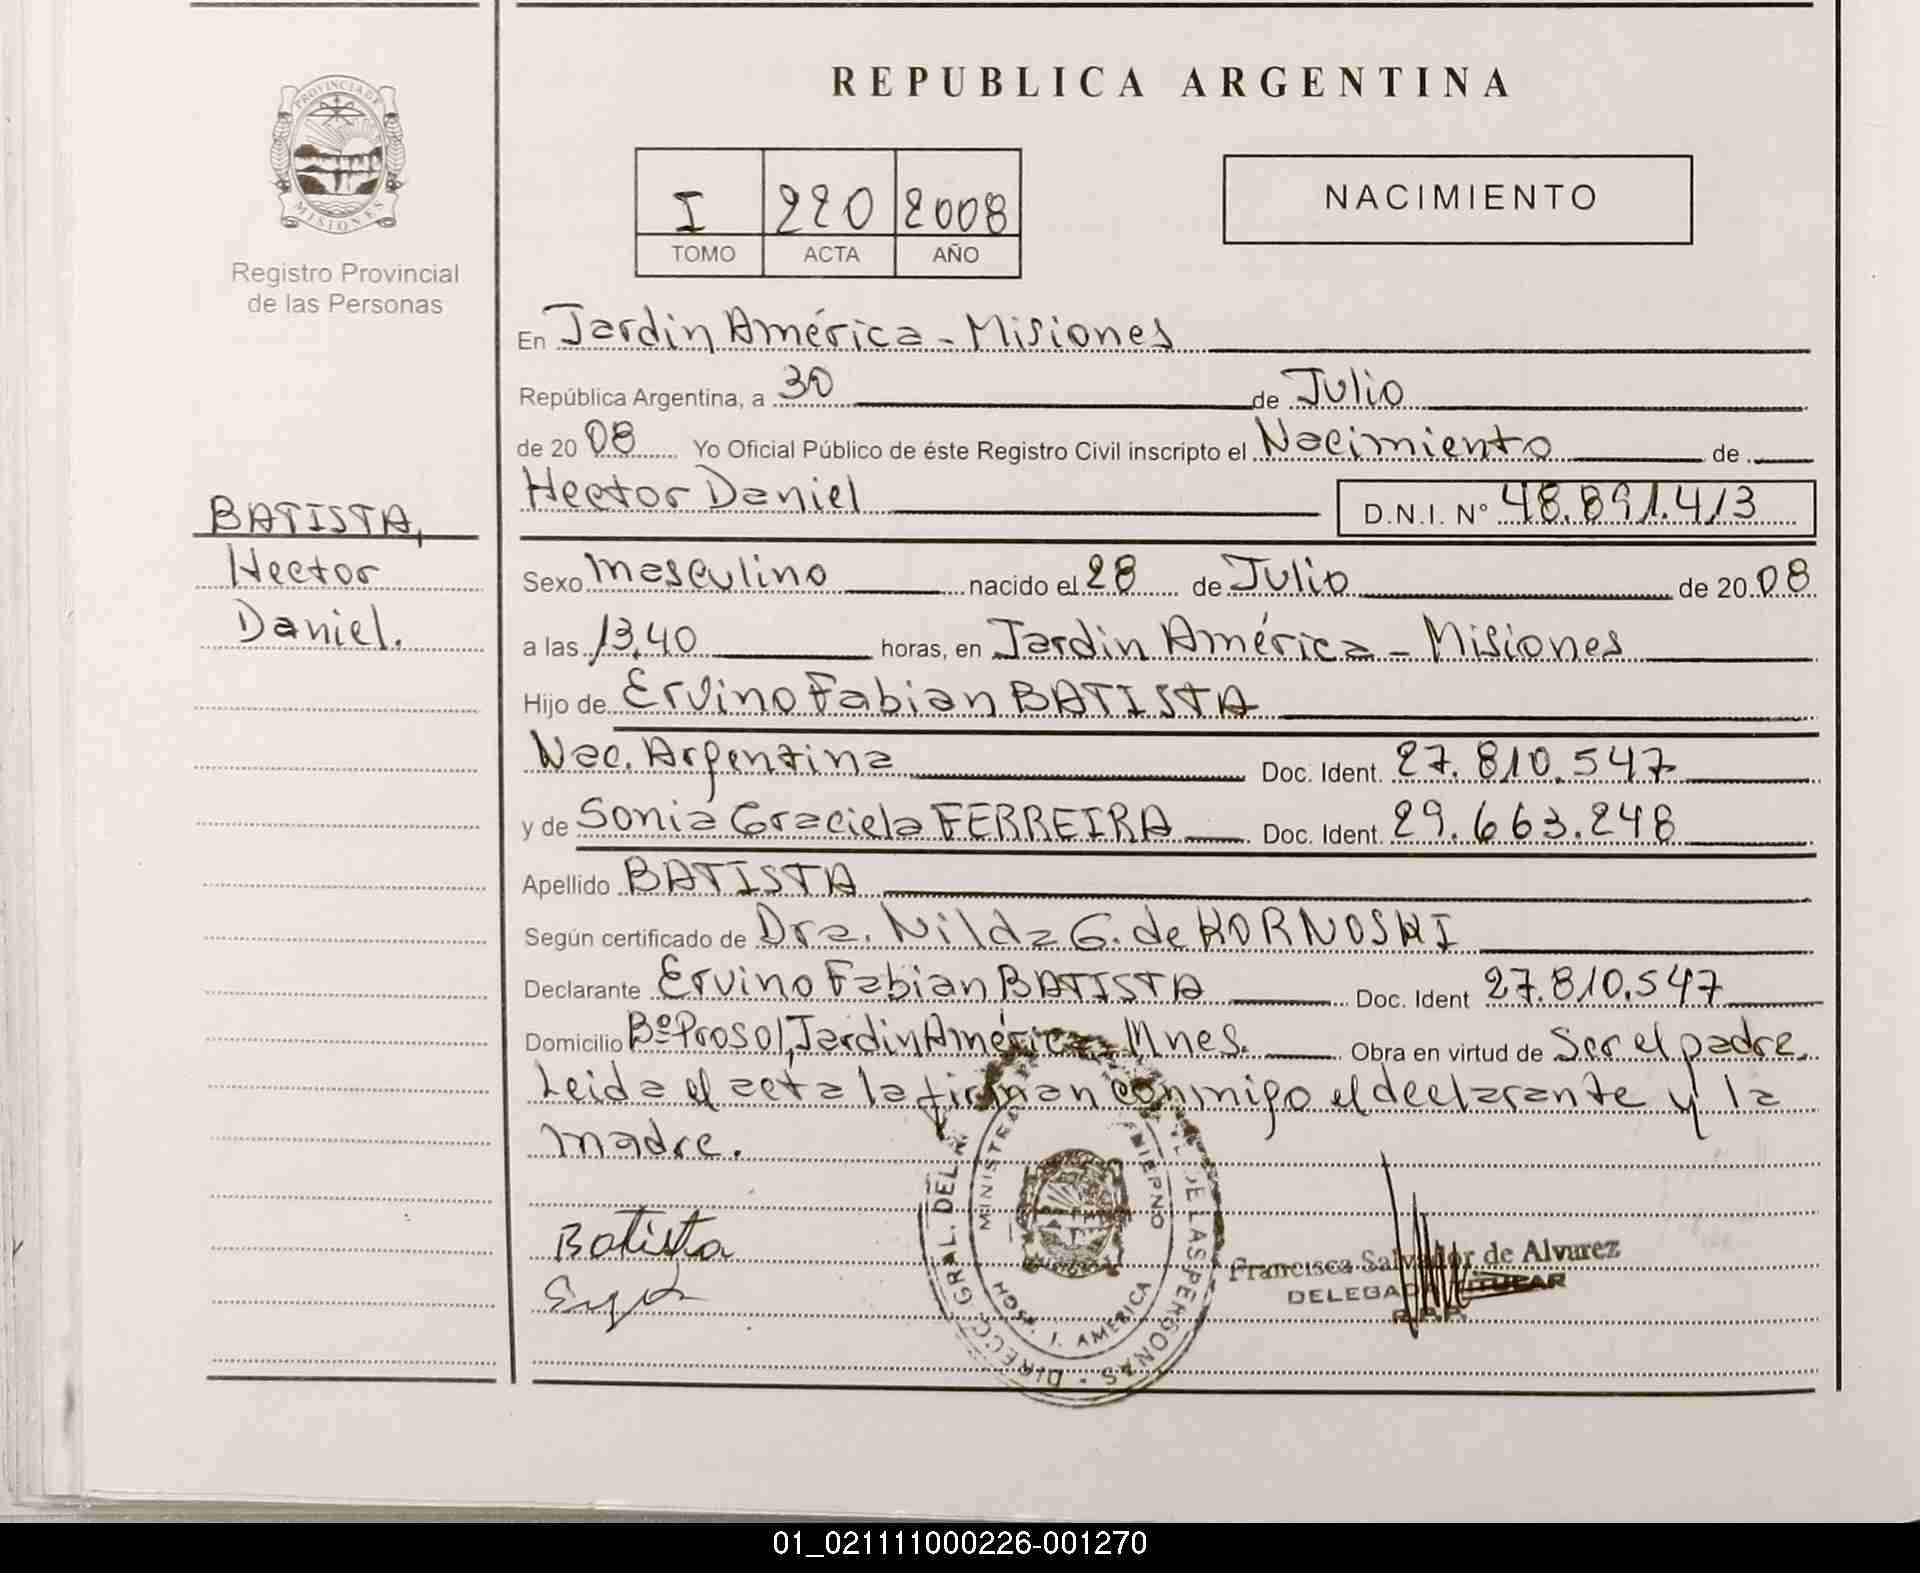 REPUBLICA ARGENTINA
PROVINCIA DE
MISIONES
Registro Provincial
de las Personas
I 220 2008
TOMO ACTA AÑO
NACIMIENTO
En Jardin América - Misiones
República Argentina, a 30 de Julio
de 20 08 Yo Oficial Público de éste Registro Civil inscripto el Nacimiento de
Hector Daniel D.N.I. N° 48.891.413
BATISTA,
Hector
Daniel.
Sexo masculino nacido el 28 de Julio de 20 08
a las 13,40 horas, en Jardin América - Misiones
Hijo de Ervino Fabian BATISTA
Nac. Argentina Doc. Ident. 27.810.547
y de Sonia Graciela FERREIRA Doc. Ident. 29.663.248
Apellido BATISTA
Según certificado de Dra. Nilda G. de KORNOSKI
Declarante Ervino Fabian BATISTA Doc. Ident 27.810.547
Domicilio Bº Prosol, Jardin América - Mnes. Obra en virtud de Ser el padre.
Leida el acta la firman conmigo el declarante y la
madre.
Batista
DIRECC. GRAL. DEL DE LAS PERSONAS
HOSP. J. AMERICA
Francisca Salvador de Alvarez
DELEGADA TITULAR
R.P.P.
01_021111000226-001270